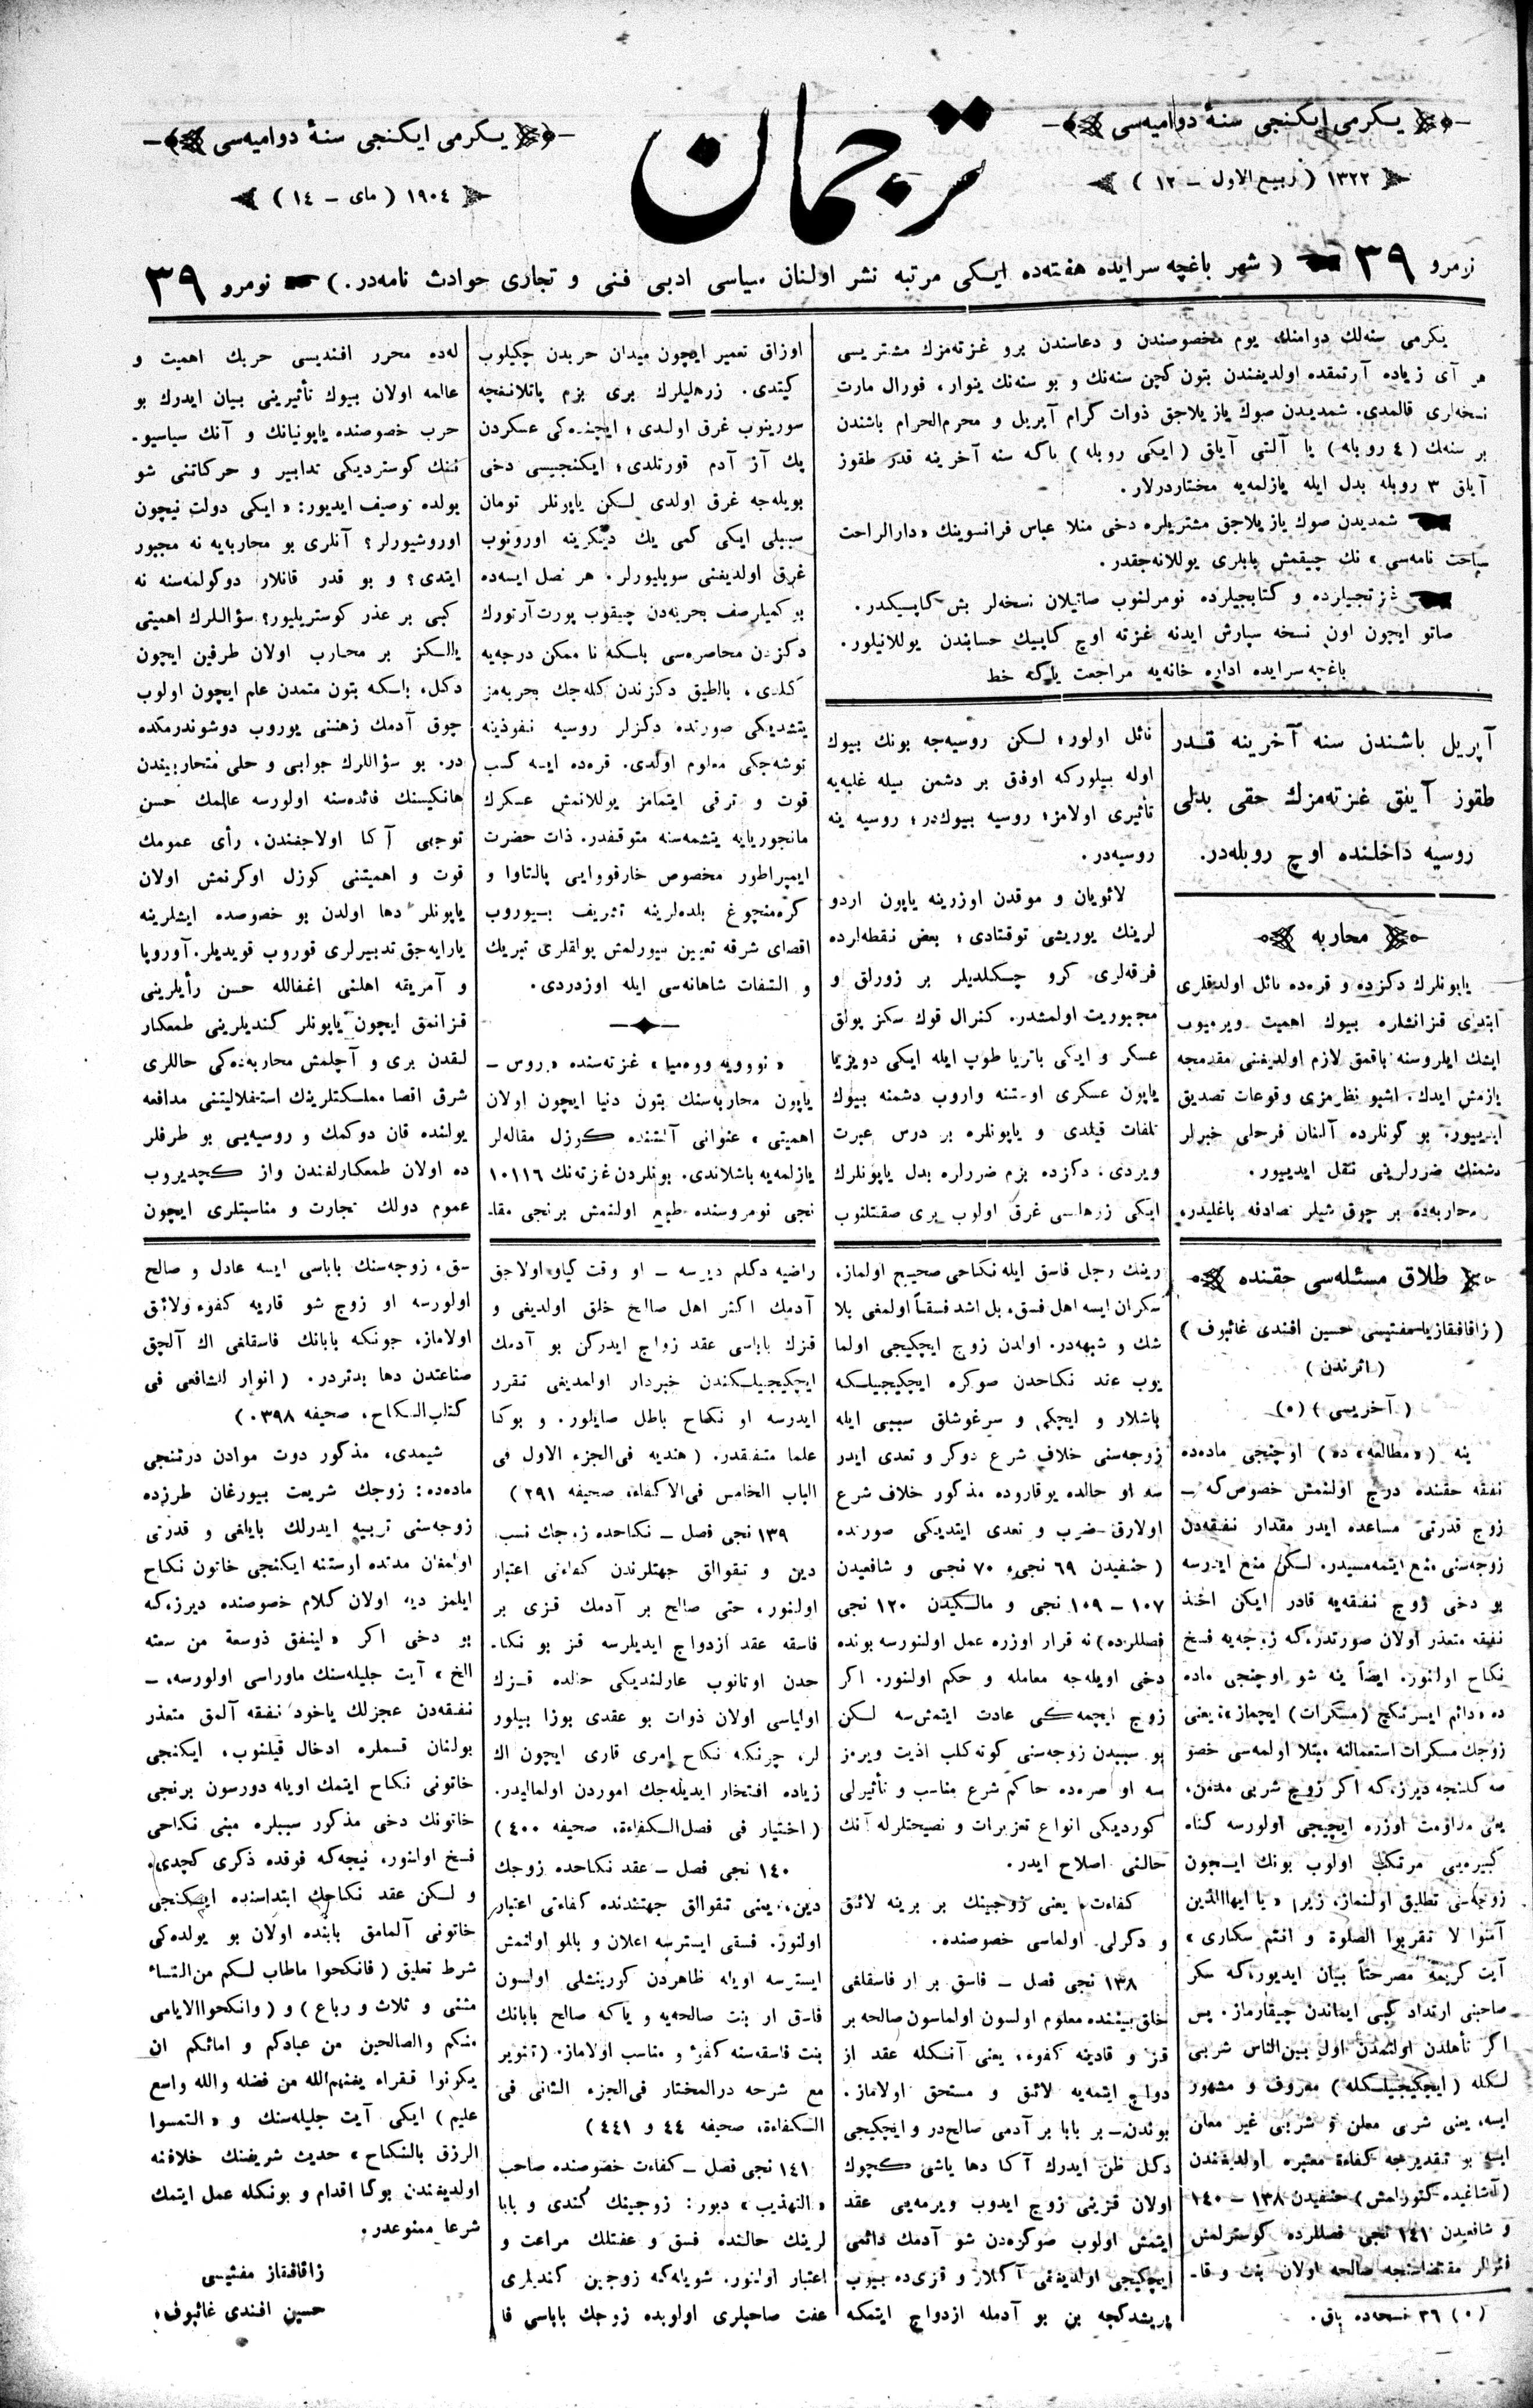 ترجمان
یكرمی ایكنجی سنهٔ دوامیه‌سی
١٣٢٢ ( ربیع الاول – ١٢ )
یكرمی ایكنجی سنهٔ دوامیه‌سی
١٩٠٤ ( مای – ١٤ )
نومرو ٣٩ ( شهر باغچه سرایده هفته‌ده ایكی مرتبه نشر اولنان سیاسی ادبی فنی و تجاری حوادث نامه‌در. ) نومرو ٣٩
یكرمی سنه‌لك دوامنك یوم مخصوصندن و دعاسندن برو غزته‌مزك مشتریسی
هر آی زیاده آرتمقده اولدیغندن بتون كچن سنه‌نك و بو سنه‌نك ینوار، فورال مارت
نسخه‌لری قالمدی. شمدیدن صوك یازیلاجق ذوات كرام آپریل و محرم‌الحرام باشندن
بر سنه‌لك ( ٤ روبله ) یا آلتی آیلق ( ایكی روبله ) یاكه سنه آخرینه قدر طقوز
آیلق ٣ روبله بدل ایله یازلمه‌یه مختاردرلار.
شمدیدن صوك یازیلاجق مشتریلره دخی منلا عباس فرانسوینك «دارالراحت
سیاحت نامه‌سی» نك چیقمش پایلری یوللانه‌جقدر.
غزتجیلرده و كتابجیلرده نومرلنوب صاتیلان نسخه‌لر بش كاپیكدر.
صاتو ایچون اون نسخه سپارش ایدنه غزته اوچ كاپیك حسابندن یوللانیلور.
باغچه سرایده اداره خانه‌یه مراجعت یاكه خط
آپریل باشندن سنه آخرینه قدر
طقوز آیلق غزته‌مزك حقی بدلی
روسیه داخلنده اوچ روبله‌در.
محاربه
یاپونلرك دكزده و قره‌ده نائل اولدقلری
ابتدای قزانشلره بیوك اهمیت ویرمیوب
ایشك ایلروسنه باقمق لازم اولدیغنی مقدمجه
یازمش ایدك. اشبو نظرمزی وقوعات تصدیق
ایدییور. بو كونلرده آلنان فرحلی خبرلر
دشمنك ضررلرینی نقل ایدییور.
محاربه‌ده بر چوق شیلر تصادفه باغلیدر،
نائل اولور؛ لكن روسیه‌جه بونك بیوك
اوله بیلوركه اوفاق بر دشمن بیله غلبه‌یه
تأثیری اولامز؛ روسیه بیوك‌در؛ روسیه ینه
روسیه‌در.
لائویان و موقدن اوزرینه یاپون اردو
لرینك یوریشی توقتادی؛ بعض نقطه‌لرده
فرقه‌لری كرو چكلدیلر بر زورلق و
مجبوریت اولمشدر. كنرال قوك سكز بولق
عسكر و ایكی باتریا طوپ ایله ایكی دویزیا
یاپون عسكری اوستنه واروب دشمنه بیوك
تلفات قیلدی و یاپونلره بر درس عبرت
ویردی. دكزده بزم ضررلره بدل یاپونلرك
ایكی زرهلسی غرق اولوب بری صقتلنوب
اوزاق تعمیر ایچون میدان حربدن چكیلوب
كیتدی. زرهلیلرك بری بزم پاتلانغجه
سورینوب غرق اولدی؛ ایچنده‌كی عسكردن
پك آز آدم قورتلدی؛ ایكنجیسی دخی
بویله‌جه غرق اولدی لكن یاپونلر تومان
سببلی ایكی كمی یك دیكرینه اورونوب
غرق اولدیغنی سویلیورلر. هر نصل ایسه‌ده
بو كمیلر صف بحریه‌دن چیقوب پورت آرتورك
دكزدن محاصره‌سی باسكه نا ممكن درجه‌یه
كلدی، بالطیق دكزندن كله‌جك بحریه‌مز
یتشدیكی صورتده دكزلر روسیه نفوذینه
توشه‌جكی معلوم اولدی. قره‌ده ایسه كسب
قوت و ترقی ایتمامز یوللانمش عسكرك
مانجوریایه یتشمه‌سنه متوقفدر. ذات حضرت
ایمپراطور مخصوص خارقووایی پالتاوا و
كره‌منچوغ بلده‌لرینه تشریف بیوروب
اقصای شرقه تعیین بیورلمش پولقلری تبریك
و التفات شاهانه‌سی ایله اوزدردی.
« نوویه وره‌میا » غزته‌سنده «روس –
یاپون محاربه‌سنك بتون دنیا ایچون اولان
اهمیتی» عنوانی آلتنده كوزل مقاله‌لر
یازلمه‌یه باشلاندی. بونلردن غزته‌نك ١٠١١٦
نجی نومروسنده طبع اولنمش برنجی مقا-
له‌ده محرر افندیسی حربك اهمیت و
عالمه اولان بیوك تأثیرینی بیان ایدرك بو
حرب خصوصنده یاپونیانك و آنك سیاسیو-
ننك كوستردیكی تدابیر و حركاتنی شو
یولده توصیف ایدیور: « ایكی دولت نیچون
اوروشیورلر؟ آنلری بو محاربه‌یه نه مجبور
ایتدی؟ و بو قدر قانلار دوكولمه‌سنه نه
كبی بر عذر كوستریلیور؟ سؤاللرك اهمیتی
یالكز بر محارب اولان طرفین ایچون
دكل، باسكه بتون متمدن عام ایچون اولوب
چوق آدمك زهننی یوروب دوشوندرمكده
در. بو سؤاللرك جوابی و حلی متحاربیندن
هانكیسنك فائده‌سنه اولورسه عالمك حسن
توجهی آكا اولاجغندن، رأی عمومك
قوت و اهمیتنی كوزل اوكرنمش اولان
یاپونلر دها اولدن بو خصوصده ایشلرینه
یارایه‌جق تدبیرلری قوروب قویدیلر. آوروپا
و آمریقه اهلنی اغفالله حسن رأیلرینی
قزانمق ایچون یاپونلر كندیلرینی طمعكار
لقدن بری و آچلمش محاربه‌ده‌كی حاللری
شرق اقصا مملكتلرینك استقلالیتنی مدافعه
یولنده قان دوكمك و روسیه‌یی بو طرفلر
ده اولان طمعكارلغندن واز كچدیروب
عموم دولك تجارت و مناسبتلری ایچون
طلاق مسئله‌سی حقنده
( زاقافقازیا مفتیسی حسین افندی غائبوف )
( اثرندن )
( آخریسی ) (٥)
ینه ( «مطالعه» ده ) اوچنجی ماده‌ده
نفقه حقنده درج اولنمش خصوص‌كه –
زوج قدرتی مساعده ایدر مقدار نفقه‌دن
زوجه‌سنی منع ایتمه‌مسیدر. لكن منع ایدرسه
بو دخی زوج نفقه‌یه قادر ایكن اخذ
نفقه متعذر اولان صورتدر، كه زوجه‌یه فسخ
نكاح اولنور. ایضاً ینه شو اوچنجی ماده
ده «دائم ایسرتكچ (مسكرات) ایچماز»، یعنی
زوجك مسكرات استعمالنه مبتلا اولمه‌سی خصو
صه كلنجه دیرز، كه اكر زوج شربی مدمن،
یعنی مداومت اوزره ایچیجی اولورسه كناه
كبیره‌یی مرتكب اولوب بونك ایچون
زوجه‌سی تطلیق اولنماز، زیرا « یا ایهاالذین
آمنوا لا تقربوا الصلوة و انتم سكاری »
آیت كریمه مصرحتاً بیان ایدیور، كه سكر
صاحبنی ارتداد كبی ایماندن چیقارماز. پس
اكر تأهلدن اولنمدن اول بین‌الناس شربی
لكله ( ایچكیجیلكله ) معروف و مشهور
ایسه، یعنی شربی معلن و شربی غیر معلن
ایسه بو تقدیرجه كفاءة معتبره اولدیغندن
( آشاغیده كتورلمش ) حنفیدن ١٣٨ – ١٤٠
و شافعیدن ١٤١ نجی فصللرده كوسترلمش
قوللر مقتضاسنجه صالحه اولان بنت و قا-
(٥) ٣٦ نسخه‌ده باق.
رینك رجل فاسق ایله نكاحی صحیح اولماز.
سكران ایسه اهل فسق، بل اشد فسقاً اولمغی بلا
شك و شبهه‌در. اولدن زوج ایچكیجی اولما
یوب عند نكاحدن صوكره ایچكیجیلكه
باشلار و ایچكی و سرغوشلق سببی ایله
زوجه‌سنی خلاف شرع دوكر و تعدی ایدر
سه او حالده یوقاروده مذكور خلاف شرع
اولارق ضرب و تعدی ایتدیكی صورتده
( حنفیدن ٦٩ نجی، ٧٠ نجی و شافعیدن
١٠٧ – ١٠٩ نجی و مالكیدن ١٢٠ نجی
فصللرده ) نه قرار اوزره عمل اولنورسه بونده
دخی اویله‌جه معامله و حكم اولنور. اكر
زوج ایچمه‌كی عادت ایتمش‌سه لكن
بو سببدن زوجه‌سنی كوته‌كلب اذیت ویرمز
سه او صره‌ده حاكم شرع مناسب و تأثیرلی
كوردیكی انواع تعزیرات و نصیحتلرله آنك
حالنی اصلاح ایدر.
كفاءت، یعنی زوجینك بر برینه لائق
و دكرلی اولماسی خصوصنده.
١٣٨ نجی فصل – فاسق بر ار فاسقلغی
خلق بیننده معلوم اولسون اولماسون صالحه بر
قز و قادینه كفوء، یعنی آنكله عقد از
دواج ایتمه‌یه لائق و مستحق اولاماز.
بوندن – بر بابا بر آدمی صالح‌در و ایچكیجی
دكل ظن ایدرك آكا دها یاشی كچوك
اولان قزینی زوج ایدوب ویرمه‌یی عقد
ایتمش اولوب صوكره‌دن شو آدمك دائمی
ایچكیجی اولدیغنی آكلار و قزی‌ده بیوب
یریشدكجه بن بو آدمله ازدواج ایتمكه
راضیه دكلم دیرسه – او وقت كیاو اولاجق
آدمك اكثر اهل صالح خلق اولدیغی و
قزك باباسی عقد زواج ایدركن بو آدمك
ایچكیجیلكندن خبردار اولمدیغی تقرر
ایدرسه او نكاح باطل صایلور. و بوكا
علما متفقدر. ( هندیه فی‌الجزء الاول فی
الباب الخامس فی‌الاكفاء، صحیفه ٢٩١ )
١٣٩ نجی فصل – نكاحده زوجك نسب،
دین و تقوالق جهتلرندن كفاءتی اعتبار
اولنور، حتی صالح بر آدمك قزی بر
فاسقه عقد ازدواج ایدیلرسه قز بو نكا-
حدن اوتانوب عارلندیكی حالده قزك
اولیاسی اولان ذوات بو عقدی بوزا بیلور
لر، چونكه نكاح امری قاری ایچون اك
زیاده افتخار ایدیله‌جك اموردن اولمالیدر.
( اختیار فی فصل‌الكفاءة، صحیفه ٤٠٠ )
١٤٠ نجی فصل – عقد نكاحده زوجك
دین، یعنی تقوالق جهتندنده كفاءتی اعتبار
اولنور. فسقی ایسترسه اعلان و بللو اولنمش
ایسترسه اویله ظاهردن كورینشلی اولسون
فاسق ار بنت صالحه‌یه و یاكه صالح بابانك
بنت فاسقه‌سنه كفوء و مناسب اولاماز. ( تنویر
مع شرحه درالمختار فی‌الجزء الثانی فی
الكفاءة، صحیفه ٤٤ و ٤٤١ )
١٤١ نجی فصل – كفاءت خصوصنده صاحب
«التهذیب» دیور: زوجینك كندی و بابا
لرینك حالنده فسق و عفتلك مراعت و
اعتبار اولنور. شویله‌كه زوجین كندیلری
عفت صاحبلری اولوبده زوجك باباسی فا
سق، زوجه‌سنك باباسی ایسه عادل و صالح
اولورسه او زوج شو قاریه كفوء و لائق
اولاماز، چونكه بابانك فاسقلغی اك آلچق
صناعتدن دها بدتردر. ( انوار للشافعی فی
كتاب‌النكاح، صحیفه ٣٩٨٠ )
شیمدی، مذكور دورت موادن درتنجی
ماده‌ده: زوجك شریعت بیورغان طرزده
زوجه‌سنی تربیه ایدرلك بایلغی و قدرتی
اولمغان مدتده اوستنه ایكنجی خاتون نكاح
ایلمز دیه اولان كلام خصوصنده دیرز، كه
بو دخی اكر « لینفق ذوسعة من سعته
الخ » آیت جلیله‌سنك ماوراسی اولورسه، –
نفقه‌دن عجزلك یاخود نفقه آلمق متعذر
بولنان قسملره ادخال قیلنوب، ایكنجی
خاتونی نكاح ایتمك اویله دورسون برنجی
خاتونك دخی مذكور سببلره مبنی نكاحی
فسخ اولنور. نیچه‌كه فوقده ذكری كچدی.
و لكن عقد نكاحك ابتداسنده ایكنجی
خاتونی آلمامق بابنده اولان بو یولده‌كی
شرط تعلیق ( فانكحوا ماطاب لكم من‌النساء
مثنی و ثلاث و رباع ) و ( وانكحواالایامی
منكم والصالحین من عبادكم و امائكم ان
یكونوا فقراء یغنهم‌الله من فضله والله واسع
علیم ) ایكی آیت جلیله‌سنك و « التمسوا
الرزق بالنكاح » حدیث شریفنك خلافنه
اولدیغندن بوكا اقدام و بونكله عمل ایتمك
شرعا ممنوعدر.
زاقافقاز مفتیسی
حسین افندی غائبوف.